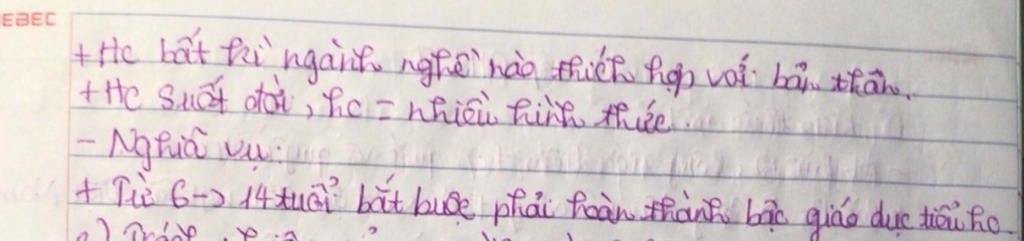 EBEC
+ Hc bất kì ngành nghề nào thích hợp với bản thân.
+ Hc suốt đời, hc = nhiều hình thức.
- Nghĩa vụ:
+ Từ 6 -> 14 tuổi bắt buộc phải hoàn thành bậc giáo dục tiểu họ